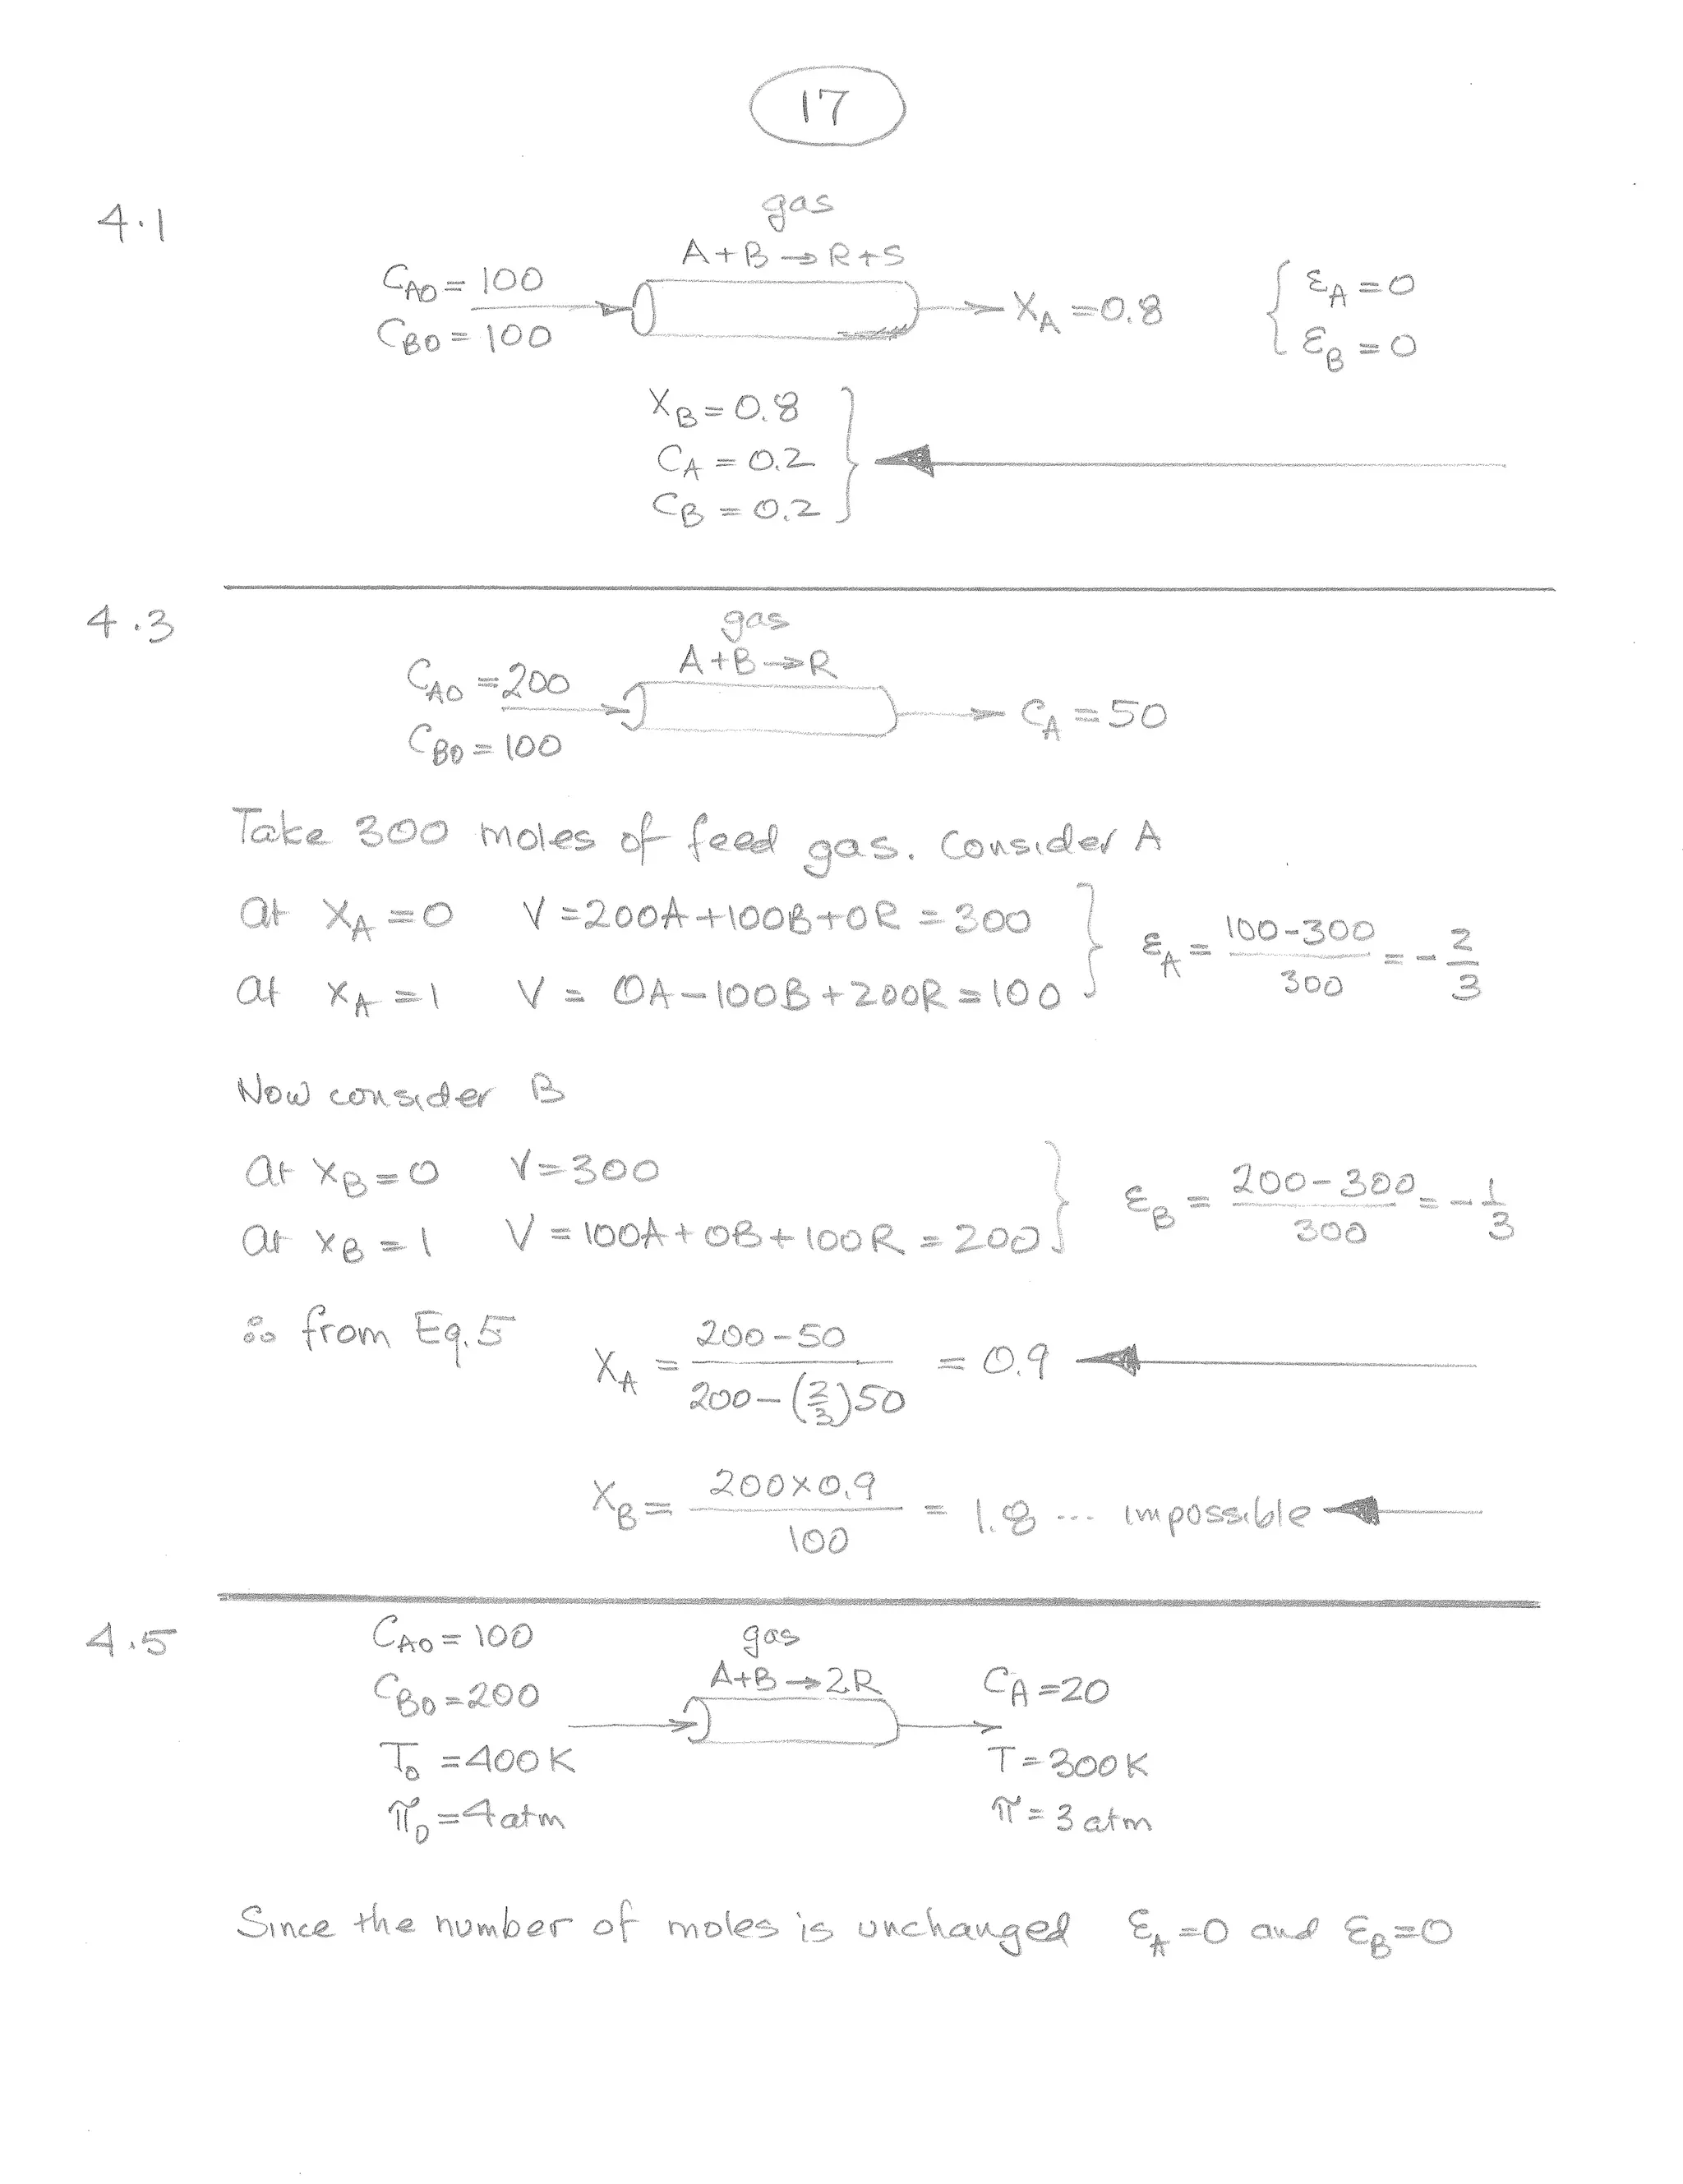 17
4.1
gas
A+B→R+S
C_A0 = 100
C_B0 = 100
X_A = 0.8
{ ε_A = 0
ε_B = 0
X_B = 0.8
C_A = 0.2
C_B = 0.2 }
4.3
gas
A+B→R
C_A0 = 200
C_B0 = 100
C_A = 50
Take 300 moles of feed gas. Consider A
At X_A = 0 V = 200A+100B+0R = 300
At X_A = 1 V = 0A-100B+200R = 100 } ε_A = (100-300)/300 = -2/3
Now consider B
At X_B = 0 V = 300
At X_B = 1 V = 100A+0B+100R = 200 } ε_B = (200-300)/300 = -1/3
∴ from Eq. 5 X_A = (200-50)/(200-(2/3)50) = 0.9
X_B = (200×0.9)/100 = 1.8 ... impossible
4.5
C_A0 = 100
C_B0 = 200
T_0 = 400 K
π_0 = 4 atm
gas
A+B→2R
C_A = 20
T = 300 K
π = 3 atm
Since the number of moles is unchanged ε_A = 0 and ε_B = 0